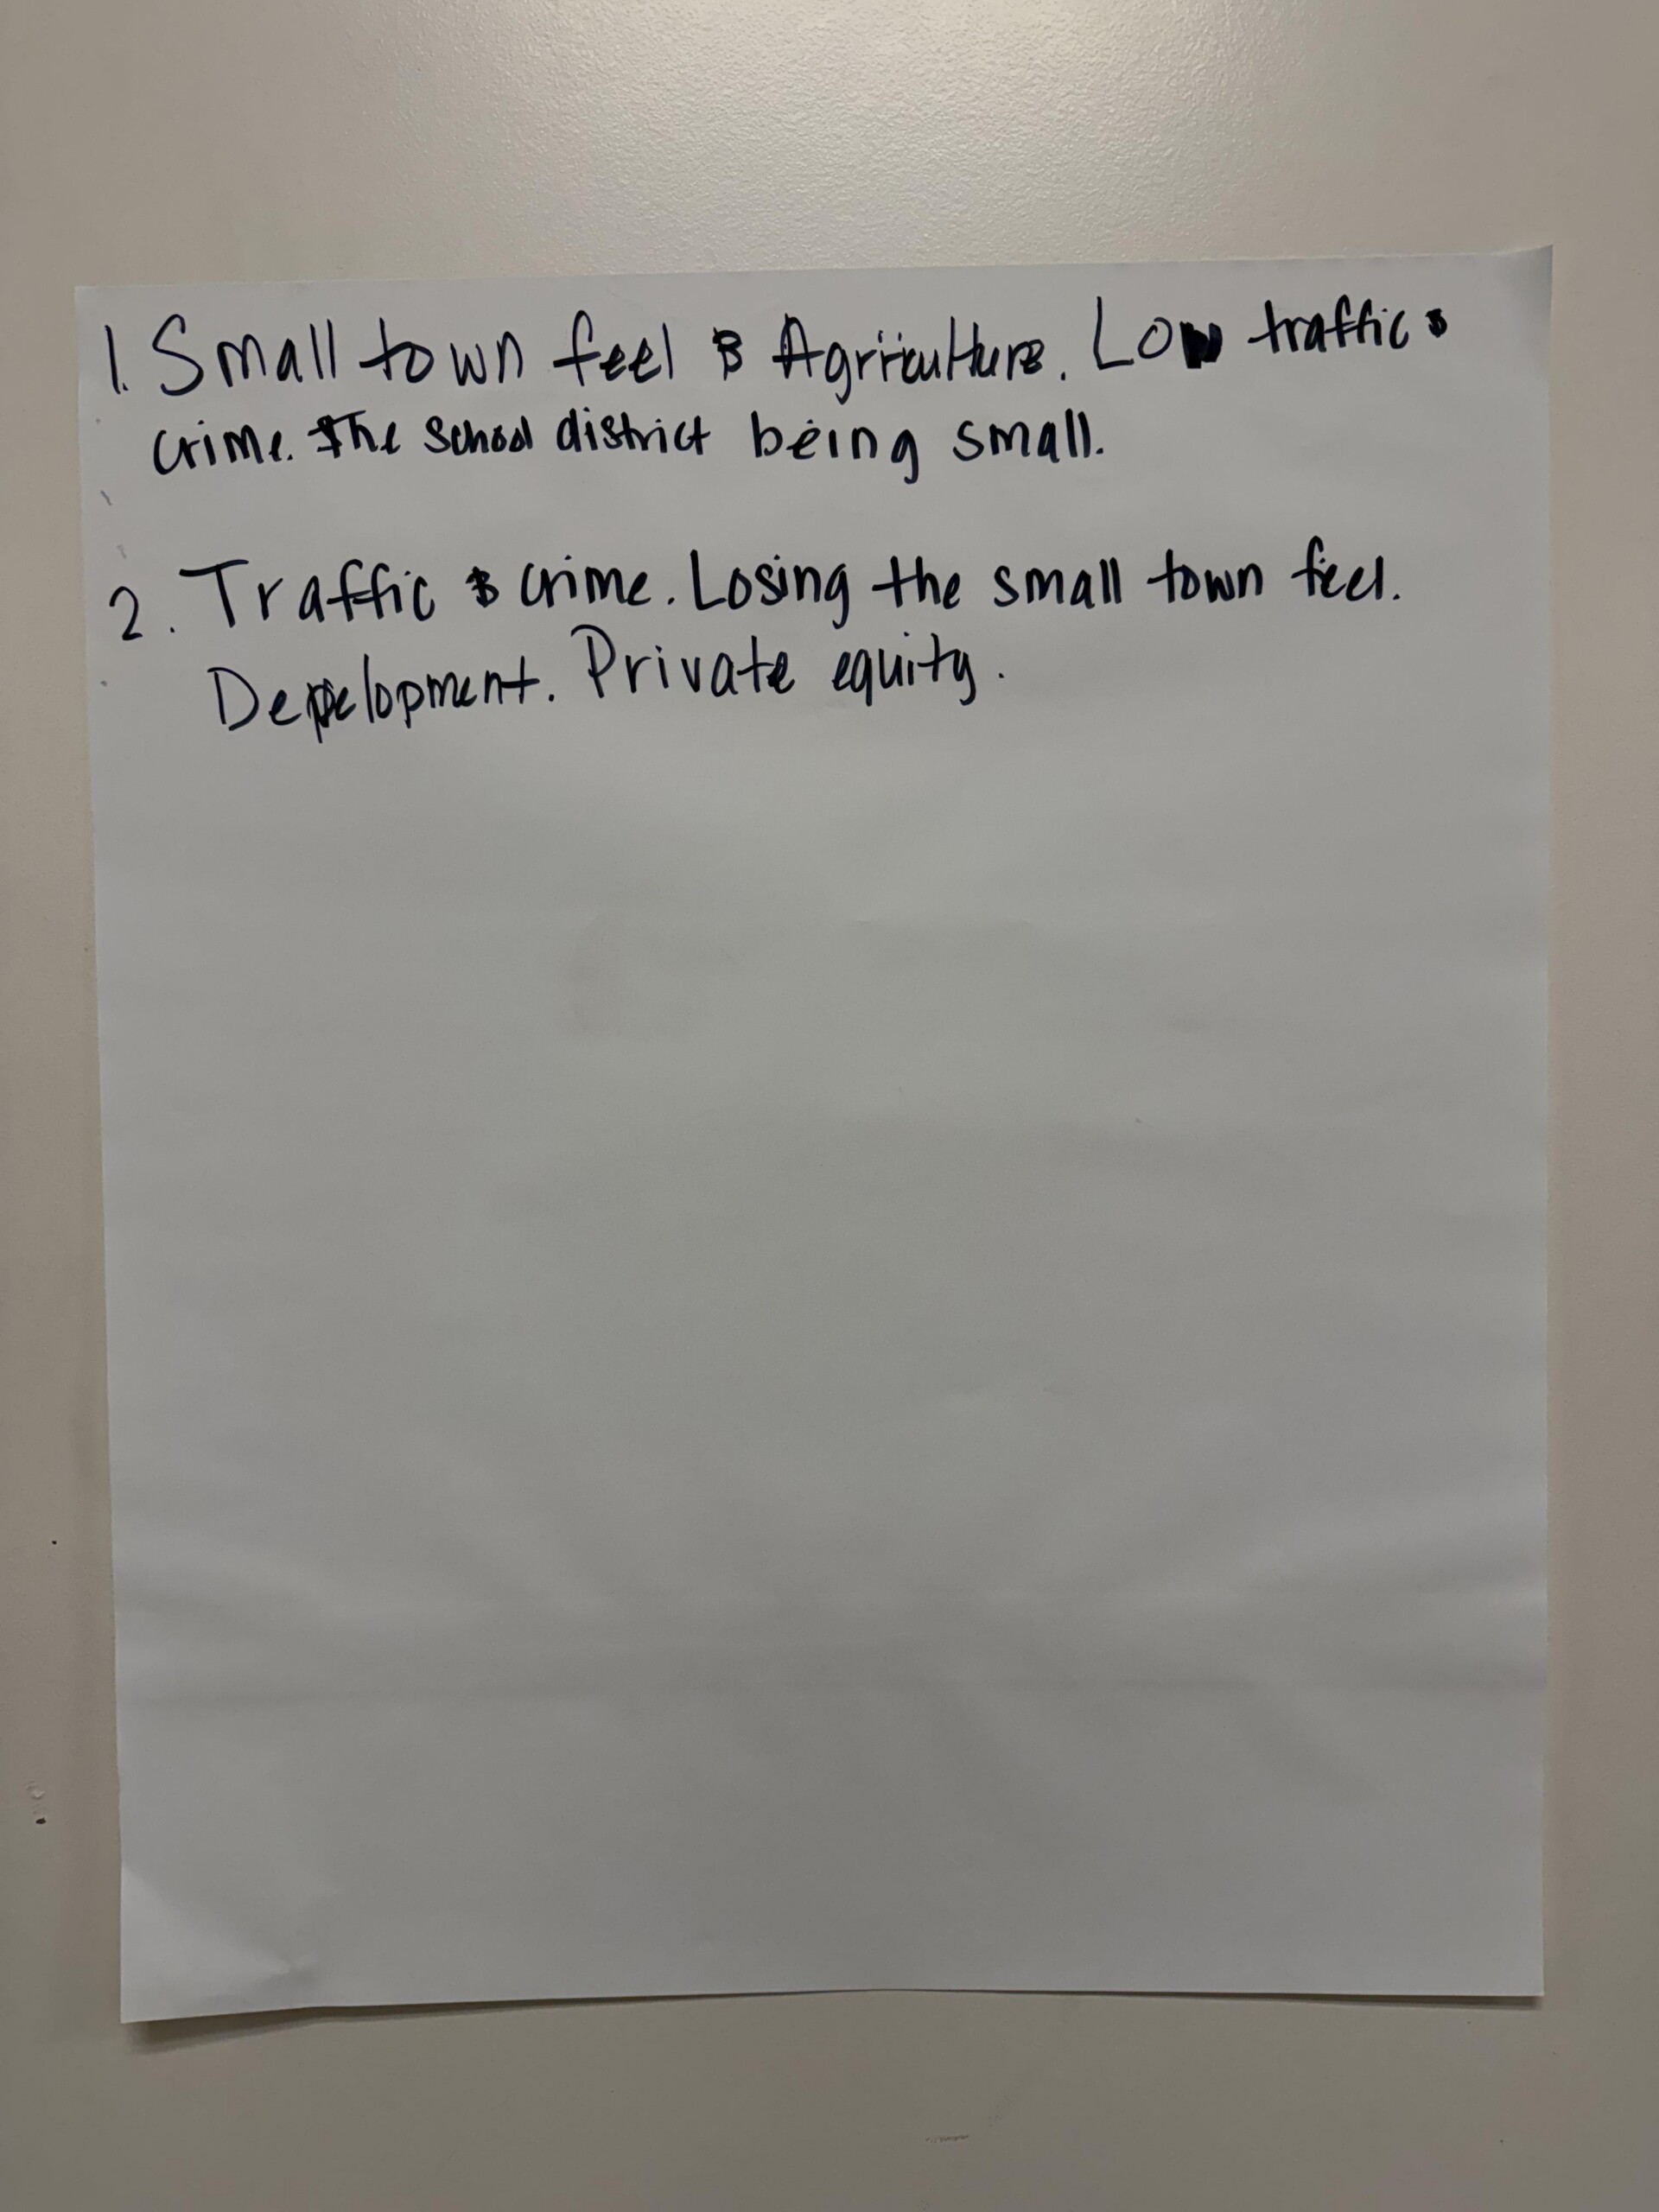 1. Small town feel & Agriculture. Low traffic &
crime. The school district being small.
2. Traffic & crime. Losing the small town feel.
Development. Private equity.